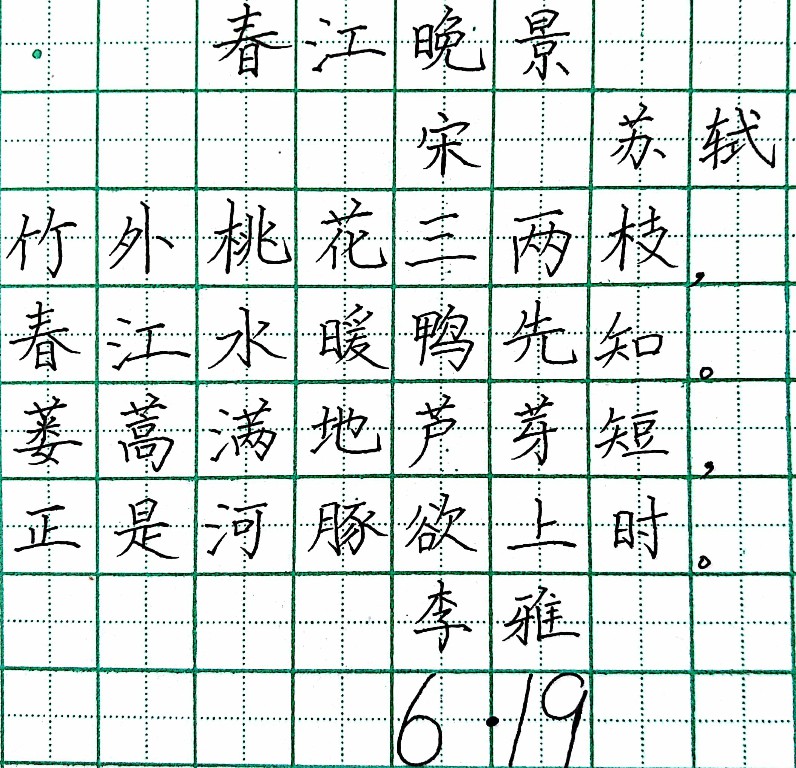 春江晚景
宋 苏轼
竹外桃花三两枝，
春江水暖鸭先知。
蒌蒿满地芦芽短，
正是河豚欲上时。
李雅
6·19